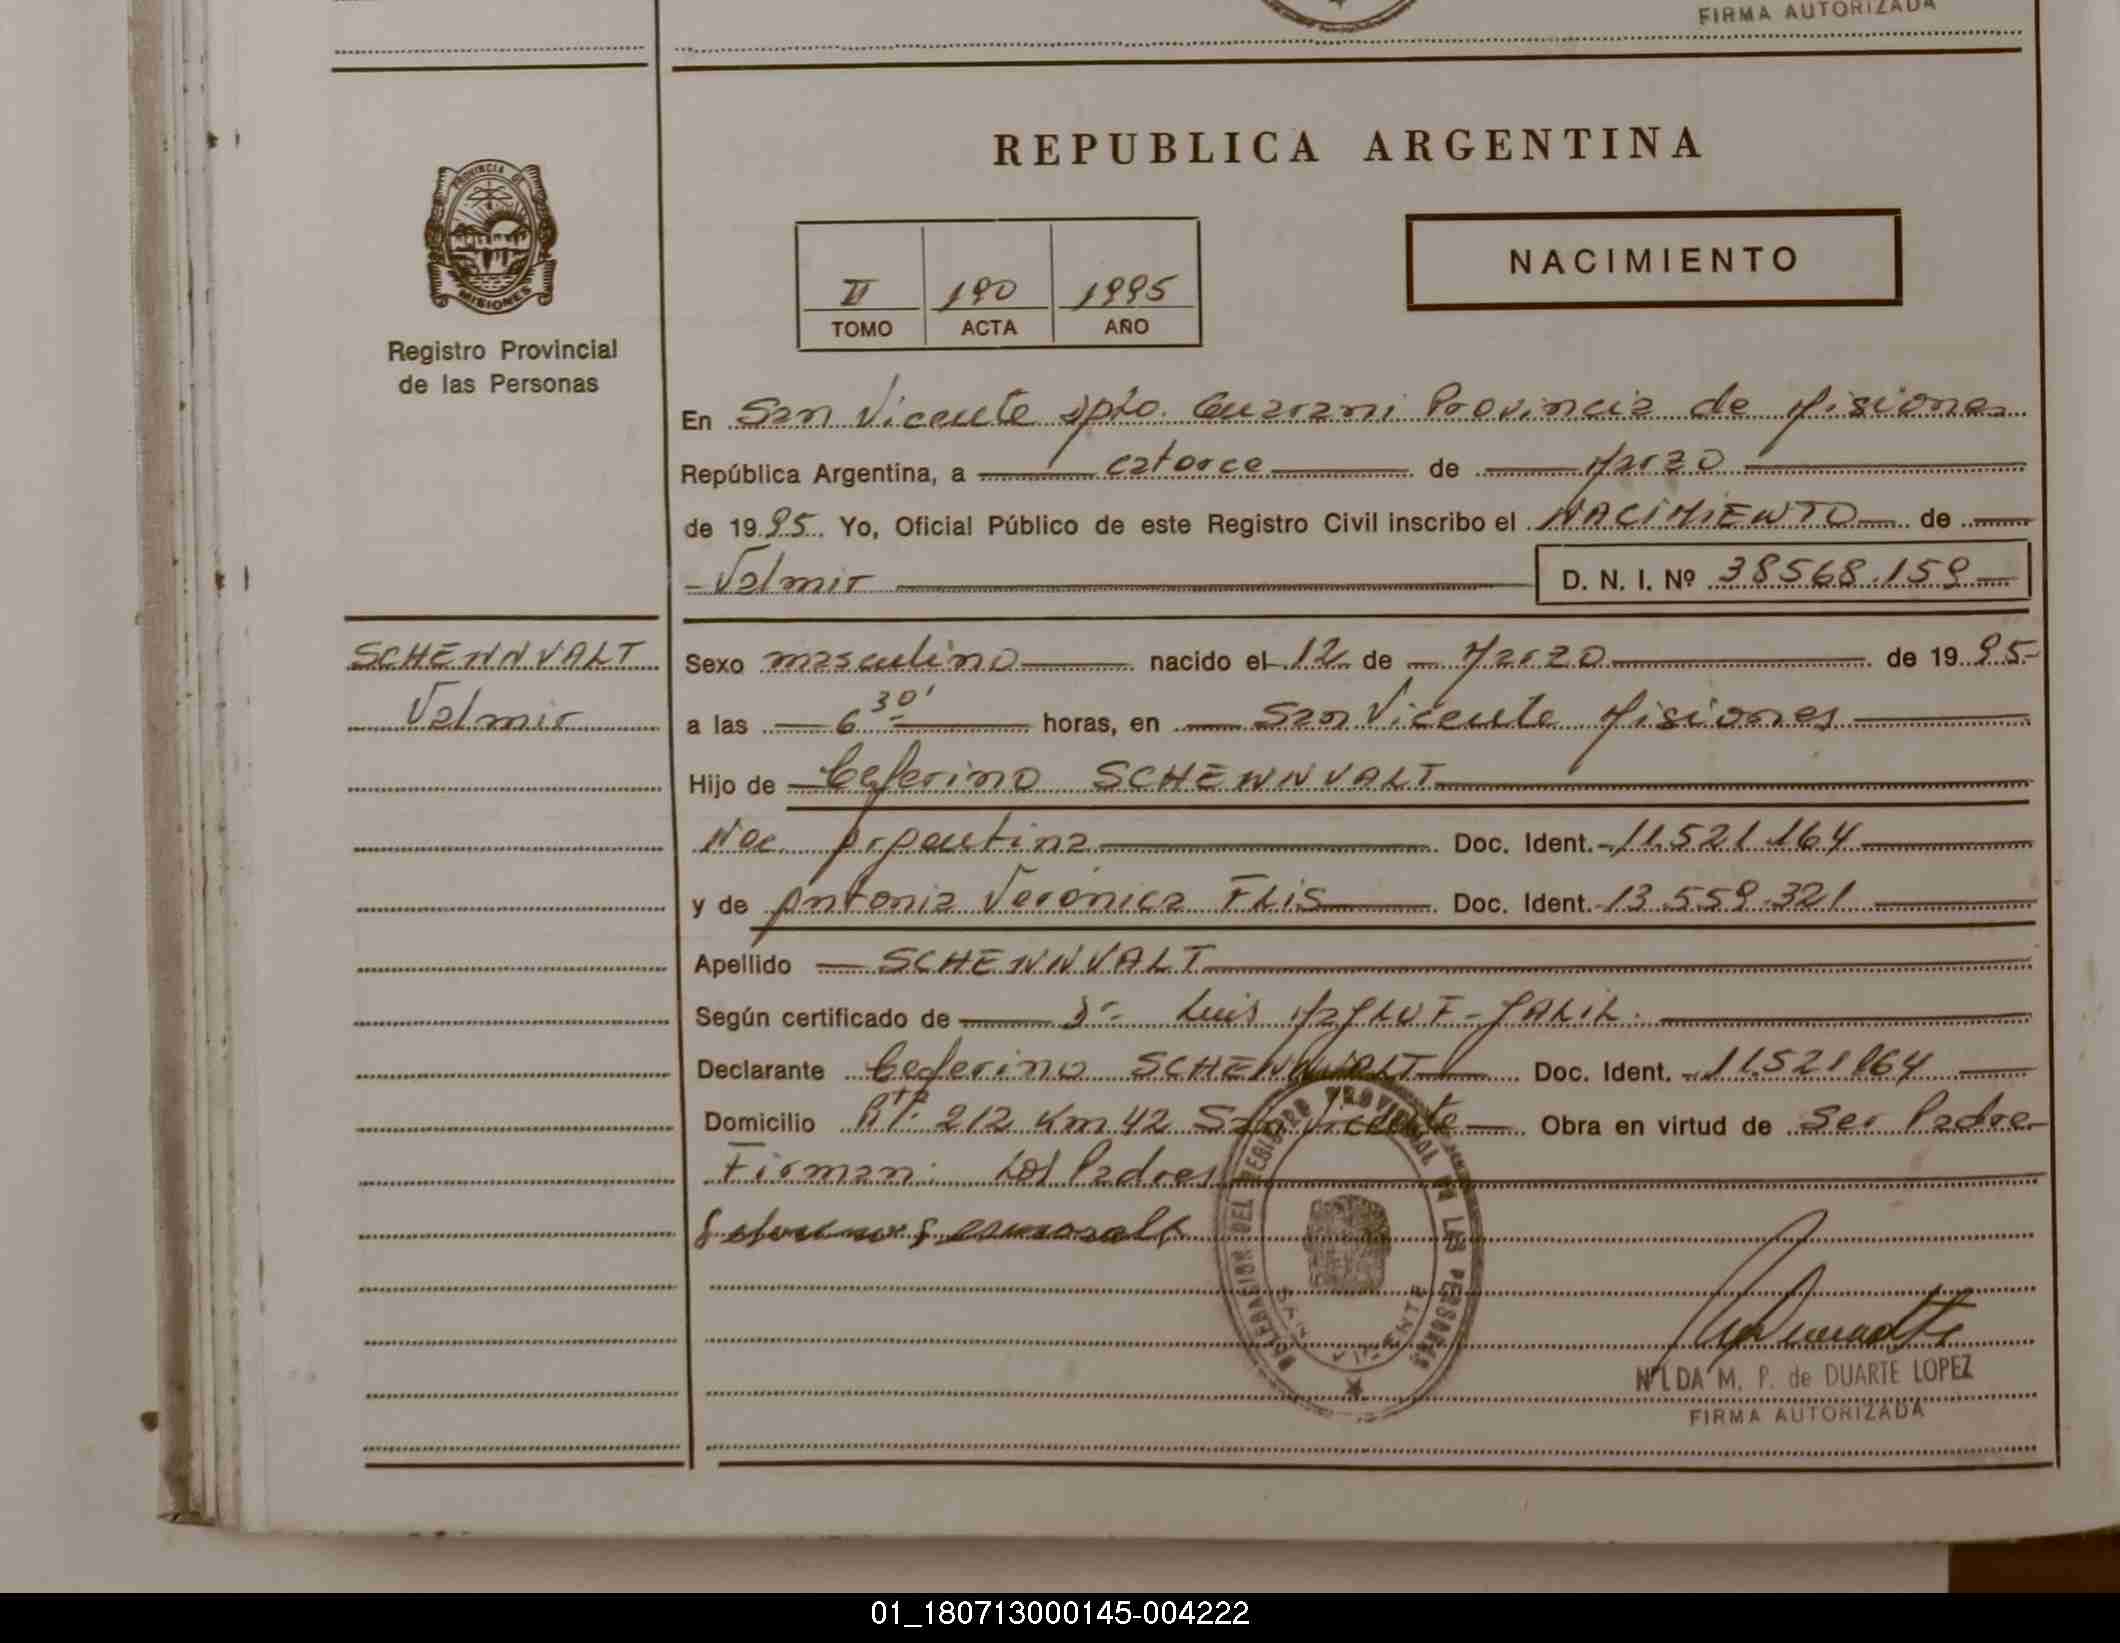 FIRMA AUTORIZADA
REPUBLICA ARGENTINA
PROVINCIA DE
MISIONES
Registro Provincial
de las Personas
II 190 1995
TOMO ACTA AÑO
NACIMIENTO
En San Vicente Dpto. Guarani Provincia de Misiones
República Argentina, a catorce de Marzo
de 1995. Yo, Oficial Público de este Registro Civil inscribo el NACIMIENTO de
Valmir D. N. I. Nº 38568.159
SCHENNVALT
Valmir
Sexo masculino nacido el 12 de Marzo de 1995
a las 6 30' horas, en San Vicente Misiones
Hijo de Ceferino SCHENNVALT
Nac. Argentina Doc. Ident. 11.521.164
y de Antonia Verónica FLIS Doc. Ident. 13.559.321
Apellido SCHENNVALT
Según certificado de Dr. Luis
Declarante Ceferino SCHENNVALT Doc. Ident. 11.521164
Domicilio Rta. 212 Km 42 San Vicente Obra en virtud de Ser Padre
Firman: Los Padres
DELEGACION DEL REGISTRO PROVINCIAL DE LAS PERSONAS
SAN VICENTE
NILDA M. P. de DUARTE LOPEZ
FIRMA AUTORIZADA
01_180713000145-004222